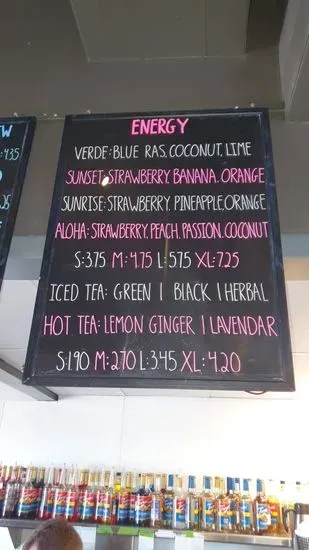 W
:435
.25
ENERGY
VERDE: BLUE RAS, COCONUT, LIME
SUNSET: STRAWBERRY, BANANA, ORANGE
SUNRISE: STRAWBERRY, PINEAPPLE, ORANGE
ALOHA: STRAWBERRY, PEACH, PASSION, COCONUT
S: 3.75 M: 4.75 L: 5.75 XL: 7.25
ICED TEA: GREEN | BLACK | HERBAL
HOT TEA: LEMON GINGER | LAVENDAR
S: 1.90 M: 2.70 L: 3.45 XL: 4.20